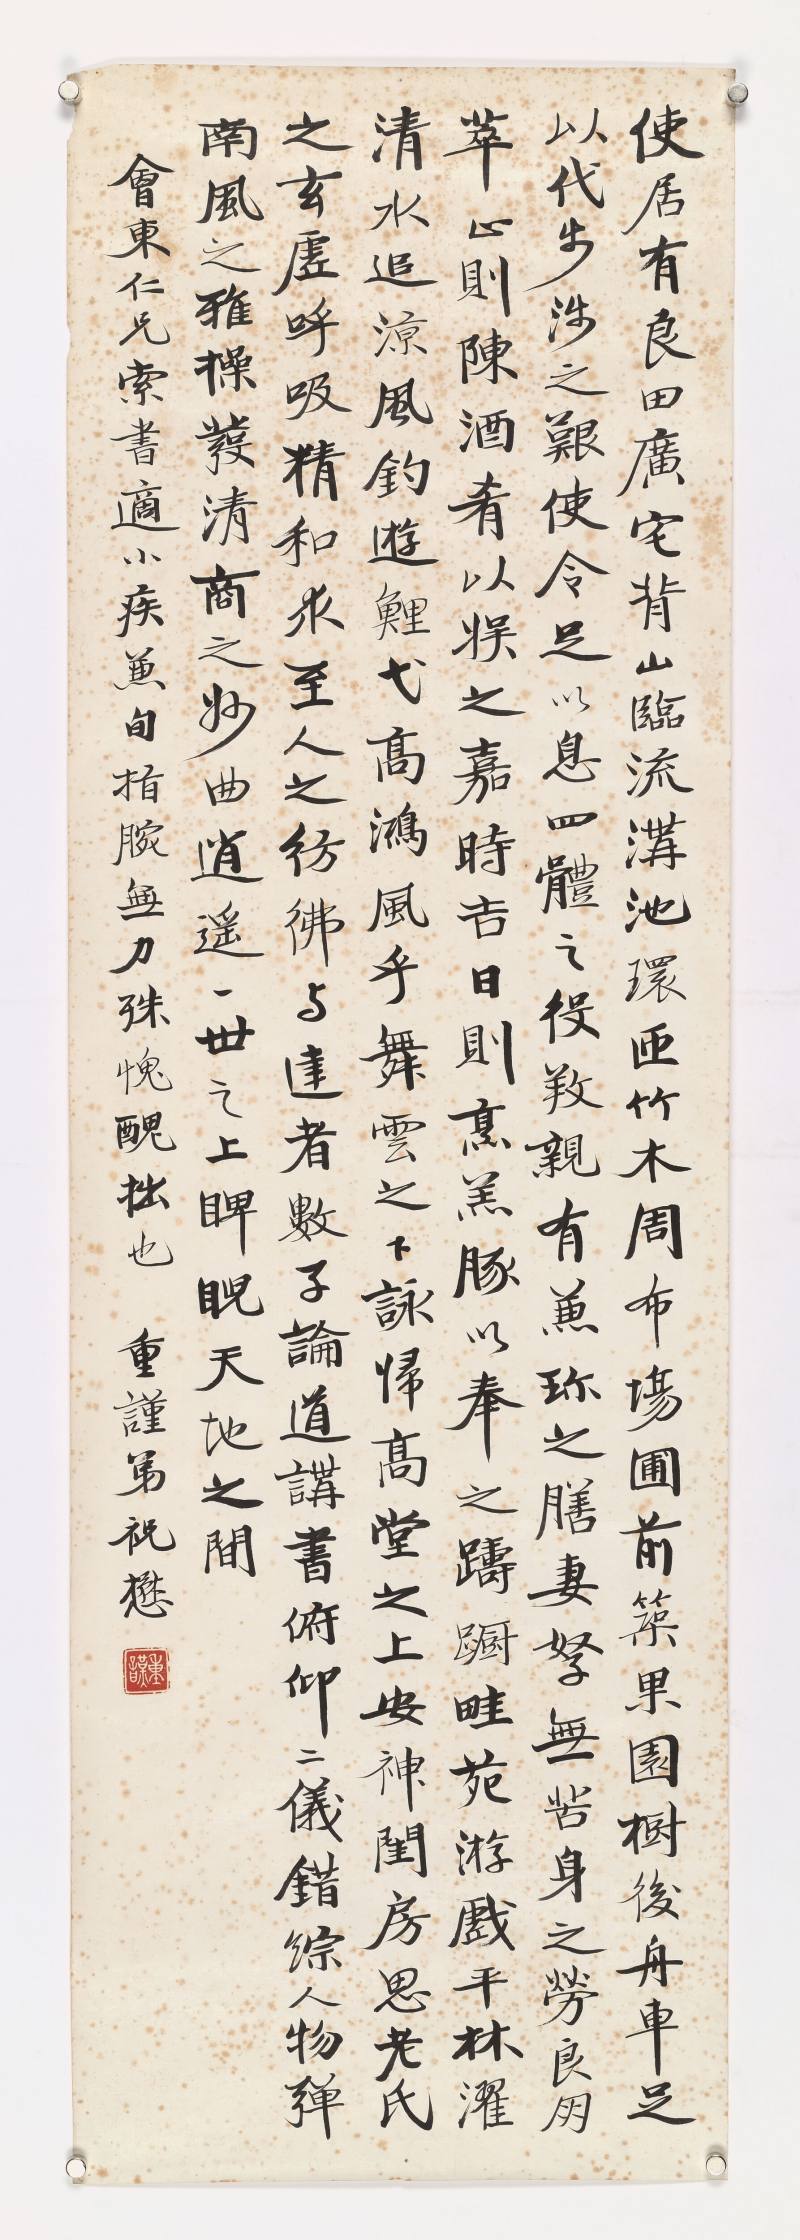 使居有良田廣宅背山臨流溝池環匝竹木周布場圃前築果園樹後舟車足
以代步涉之艱使令足以息四體之役養親有兼珍之膳妻孥無苦身之勞良朋
萃止則陳酒肴以娛之嘉時吉日則烹羔豚以奉之躊躕畦苑游戲平林濯
清水追涼風釣遊鯉弋高鴻風乎舞雩之下詠歸高堂之上安神閨房思老氏
之玄虛呼吸精和求至人之彷彿与達者數子論道講書俯仰二儀錯綜人物彈
南風之雅操發清商之妙曲逍遥一世之上睥睨天地之間
會東仁兄索書適小疾兼旬指腕無力殊愧醜拙也 重謹弟祝懋